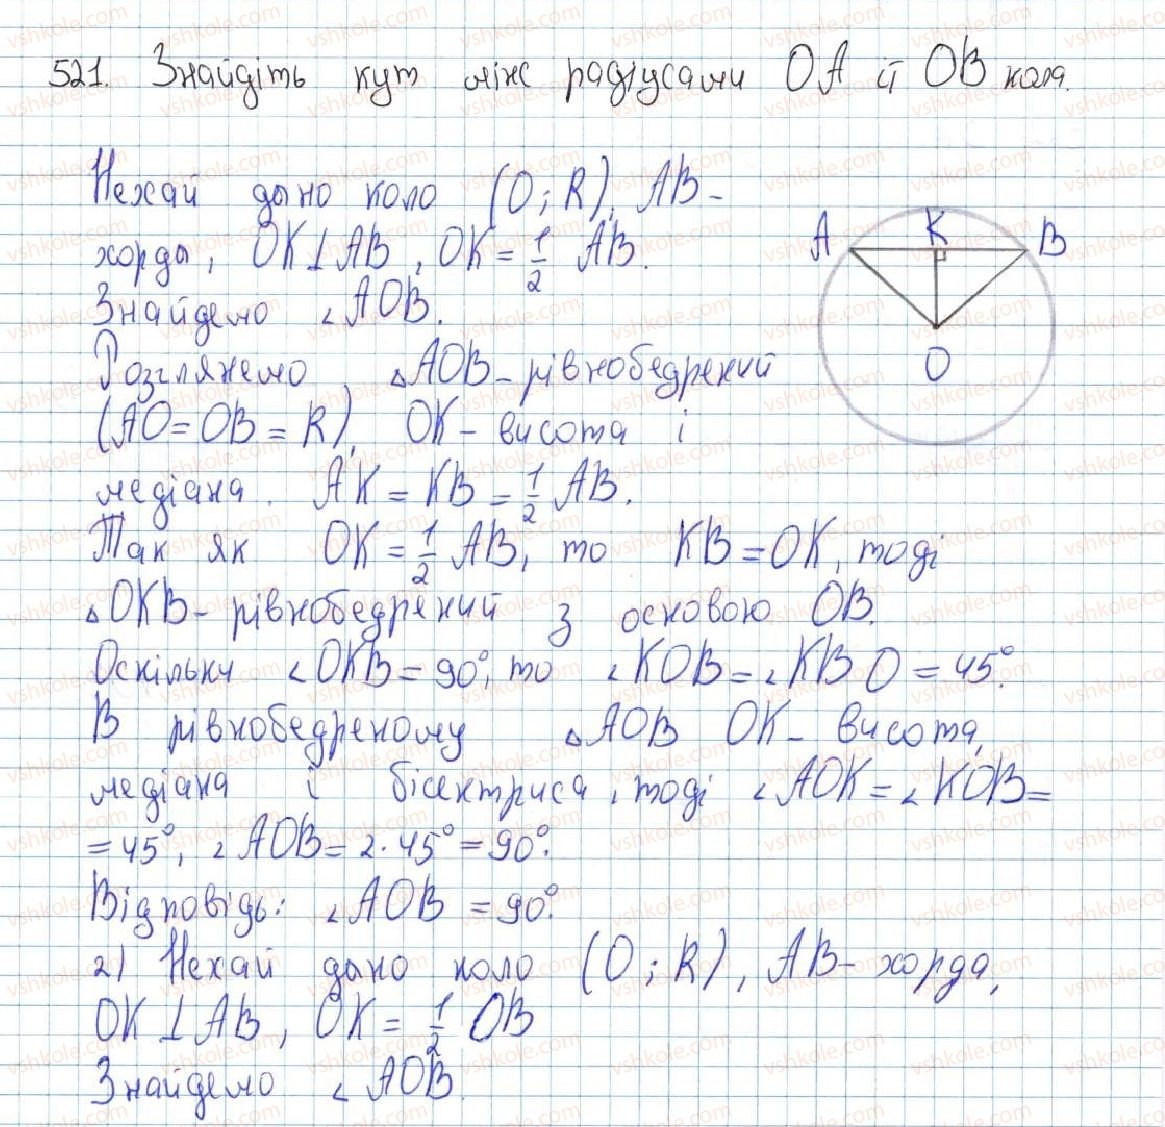 521. Знайдіть кут між радіусами OA й OB кола.
Нехай дано коло (O; R), AB -
хорда, OK ⊥ AB, OK = 1/2 AB.
Знайдемо ∠AOB.
Розглянемо, △AOB - рівнобедрений
(AO = OB = R), OK - висота і
медіана. AK = KB = 1/2 AB.
Так як OK = 1/2 AB, то KB = OK, тоді
△OKB - рівнобедрений з основою OB.
Оскільки ∠OKB = 90°, то ∠KOB = ∠KBO = 45°.
В рівнобедреному △AOB OK - висота,
медіана і бісектриса, тоді ∠AOK = ∠KOB =
= 45°, ∠AOB = 2 · 45° = 90°.
Відповідь: ∠AOB = 90°.
2) Нехай дано коло (O; R), AB - хорда,
OK ⊥ AB, OK = 1/2 OB
Знайдемо ∠AOB.
A K B
O
vshkole.com